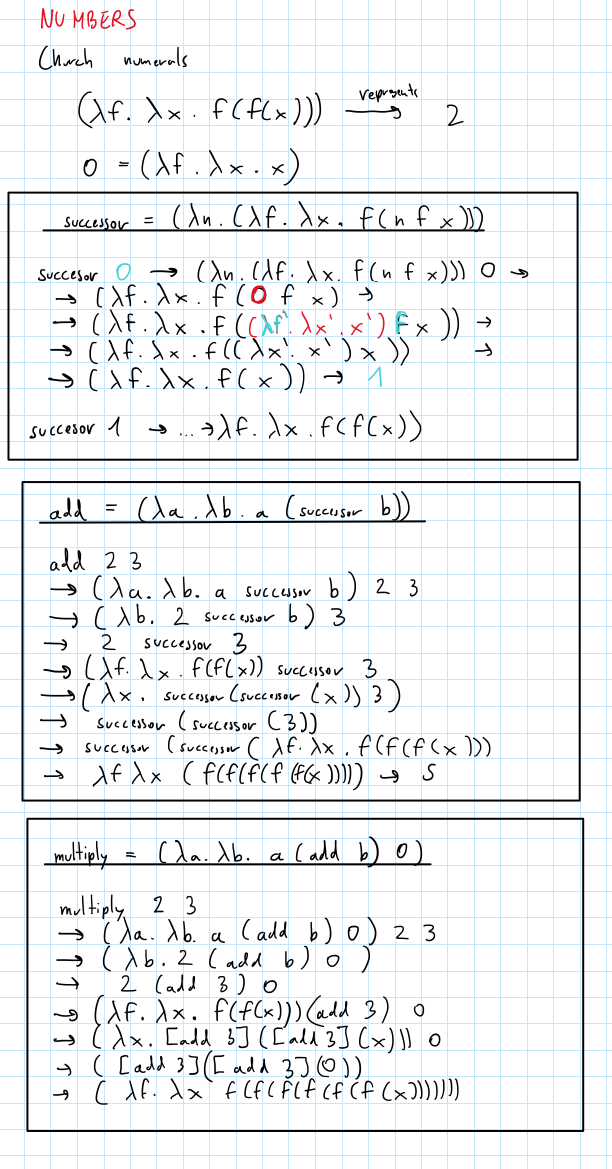 NUMBERS
Church numerals
(λf. λx. f(f(x))) represents→ 2
0 = (λf. λx. x)
successor = (λn. (λf. λx. f(n f x)))
succesor 0 → (λn. (λf. λx. f(n f x))) 0 →
→ (λf. λx. f(0 f x) →
→ (λf. λx. f((λf'. λx'. x') f x)) →
→ (λf. λx. f((λx'. x')x)) →
→ (λf. λx. f(x)) → 1
succesor 1 → ... → λf. λx. f(f(x))
add = (λa. λb. a (successor b))
add 2 3
→ (λa. λb. a successor b) 2 3
→ (λb. 2 successor b) 3
→ 2 successor 3
→ (λf. λx. f(f(x)) successor 3
→ (λx. successor (successor (x)) 3)
→ successor (successor (3))
→ successor (successor (λf. λx. f(f(f(x)))
→ λf λx (f(f(f(f(f(x))))) → 5
multiply = (λa. λb. a (add b) 0)
multiply 2 3
→ (λa. λb. a (add b) 0) 2 3
→ (λb. 2 (add b) 0 )
→ 2 (add 3) 0
→ (λf. λx. f(f(x)))(add 3) 0
→ (λx. [add 3]([add 3](x))) 0
→ ([add 3]([add 3](0))
→ (λf. λx f(f(f(f(f(f(x)))))))